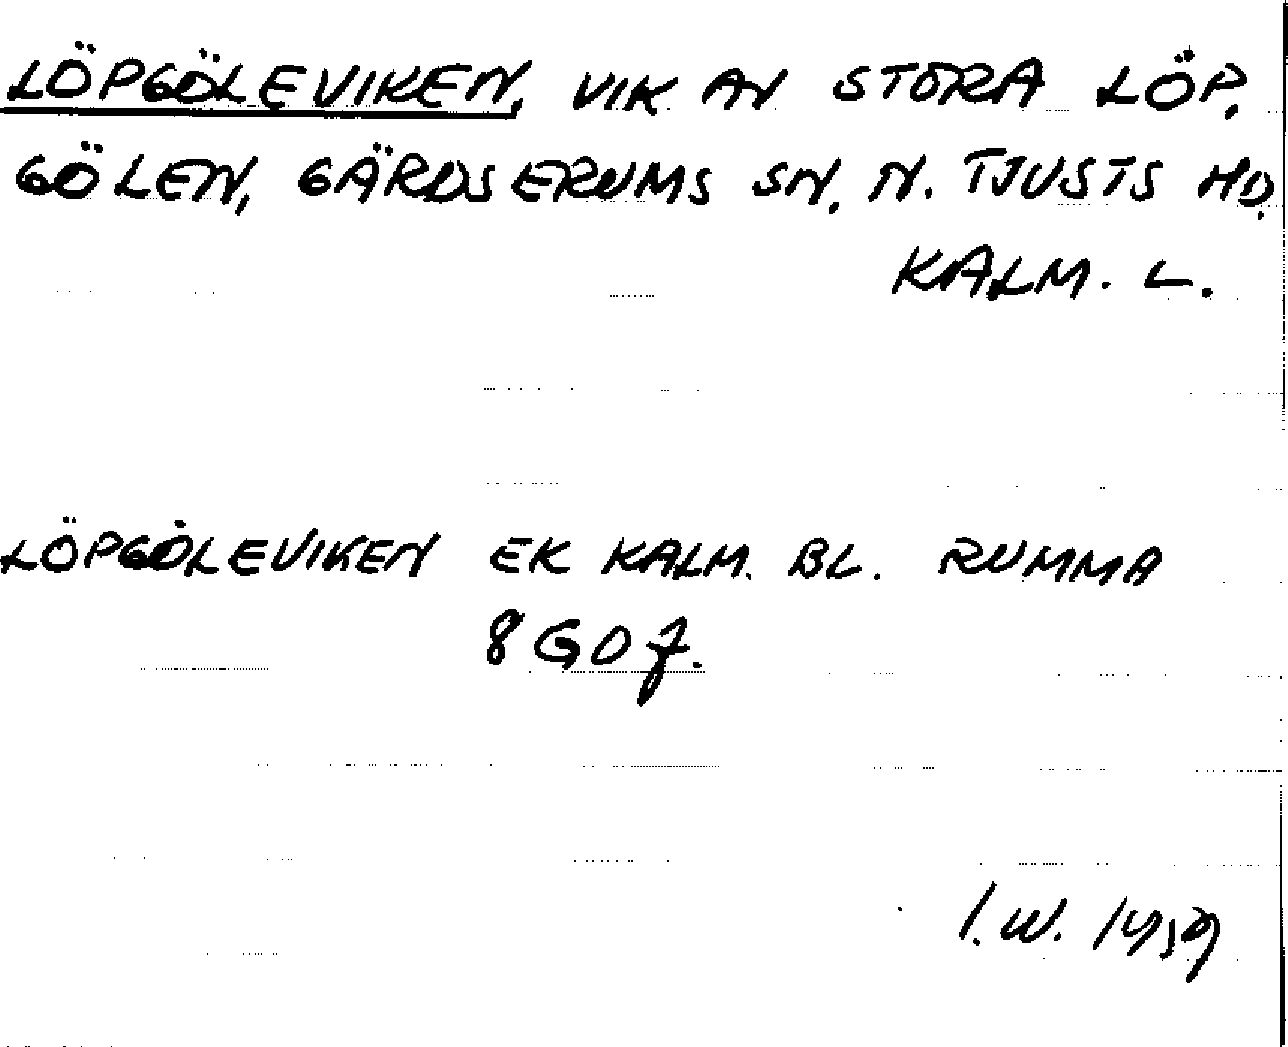 LÖPGÖLEVIKEN, VIK AV STORA LÖP.
GÖLEN, GÄRDSERUMS SN, N. TJUSTS HD,
KALM. L.
LÖPGÖLEVIKEN EK KALM. BL. RUMMA
8G0f.
I.W. 1959